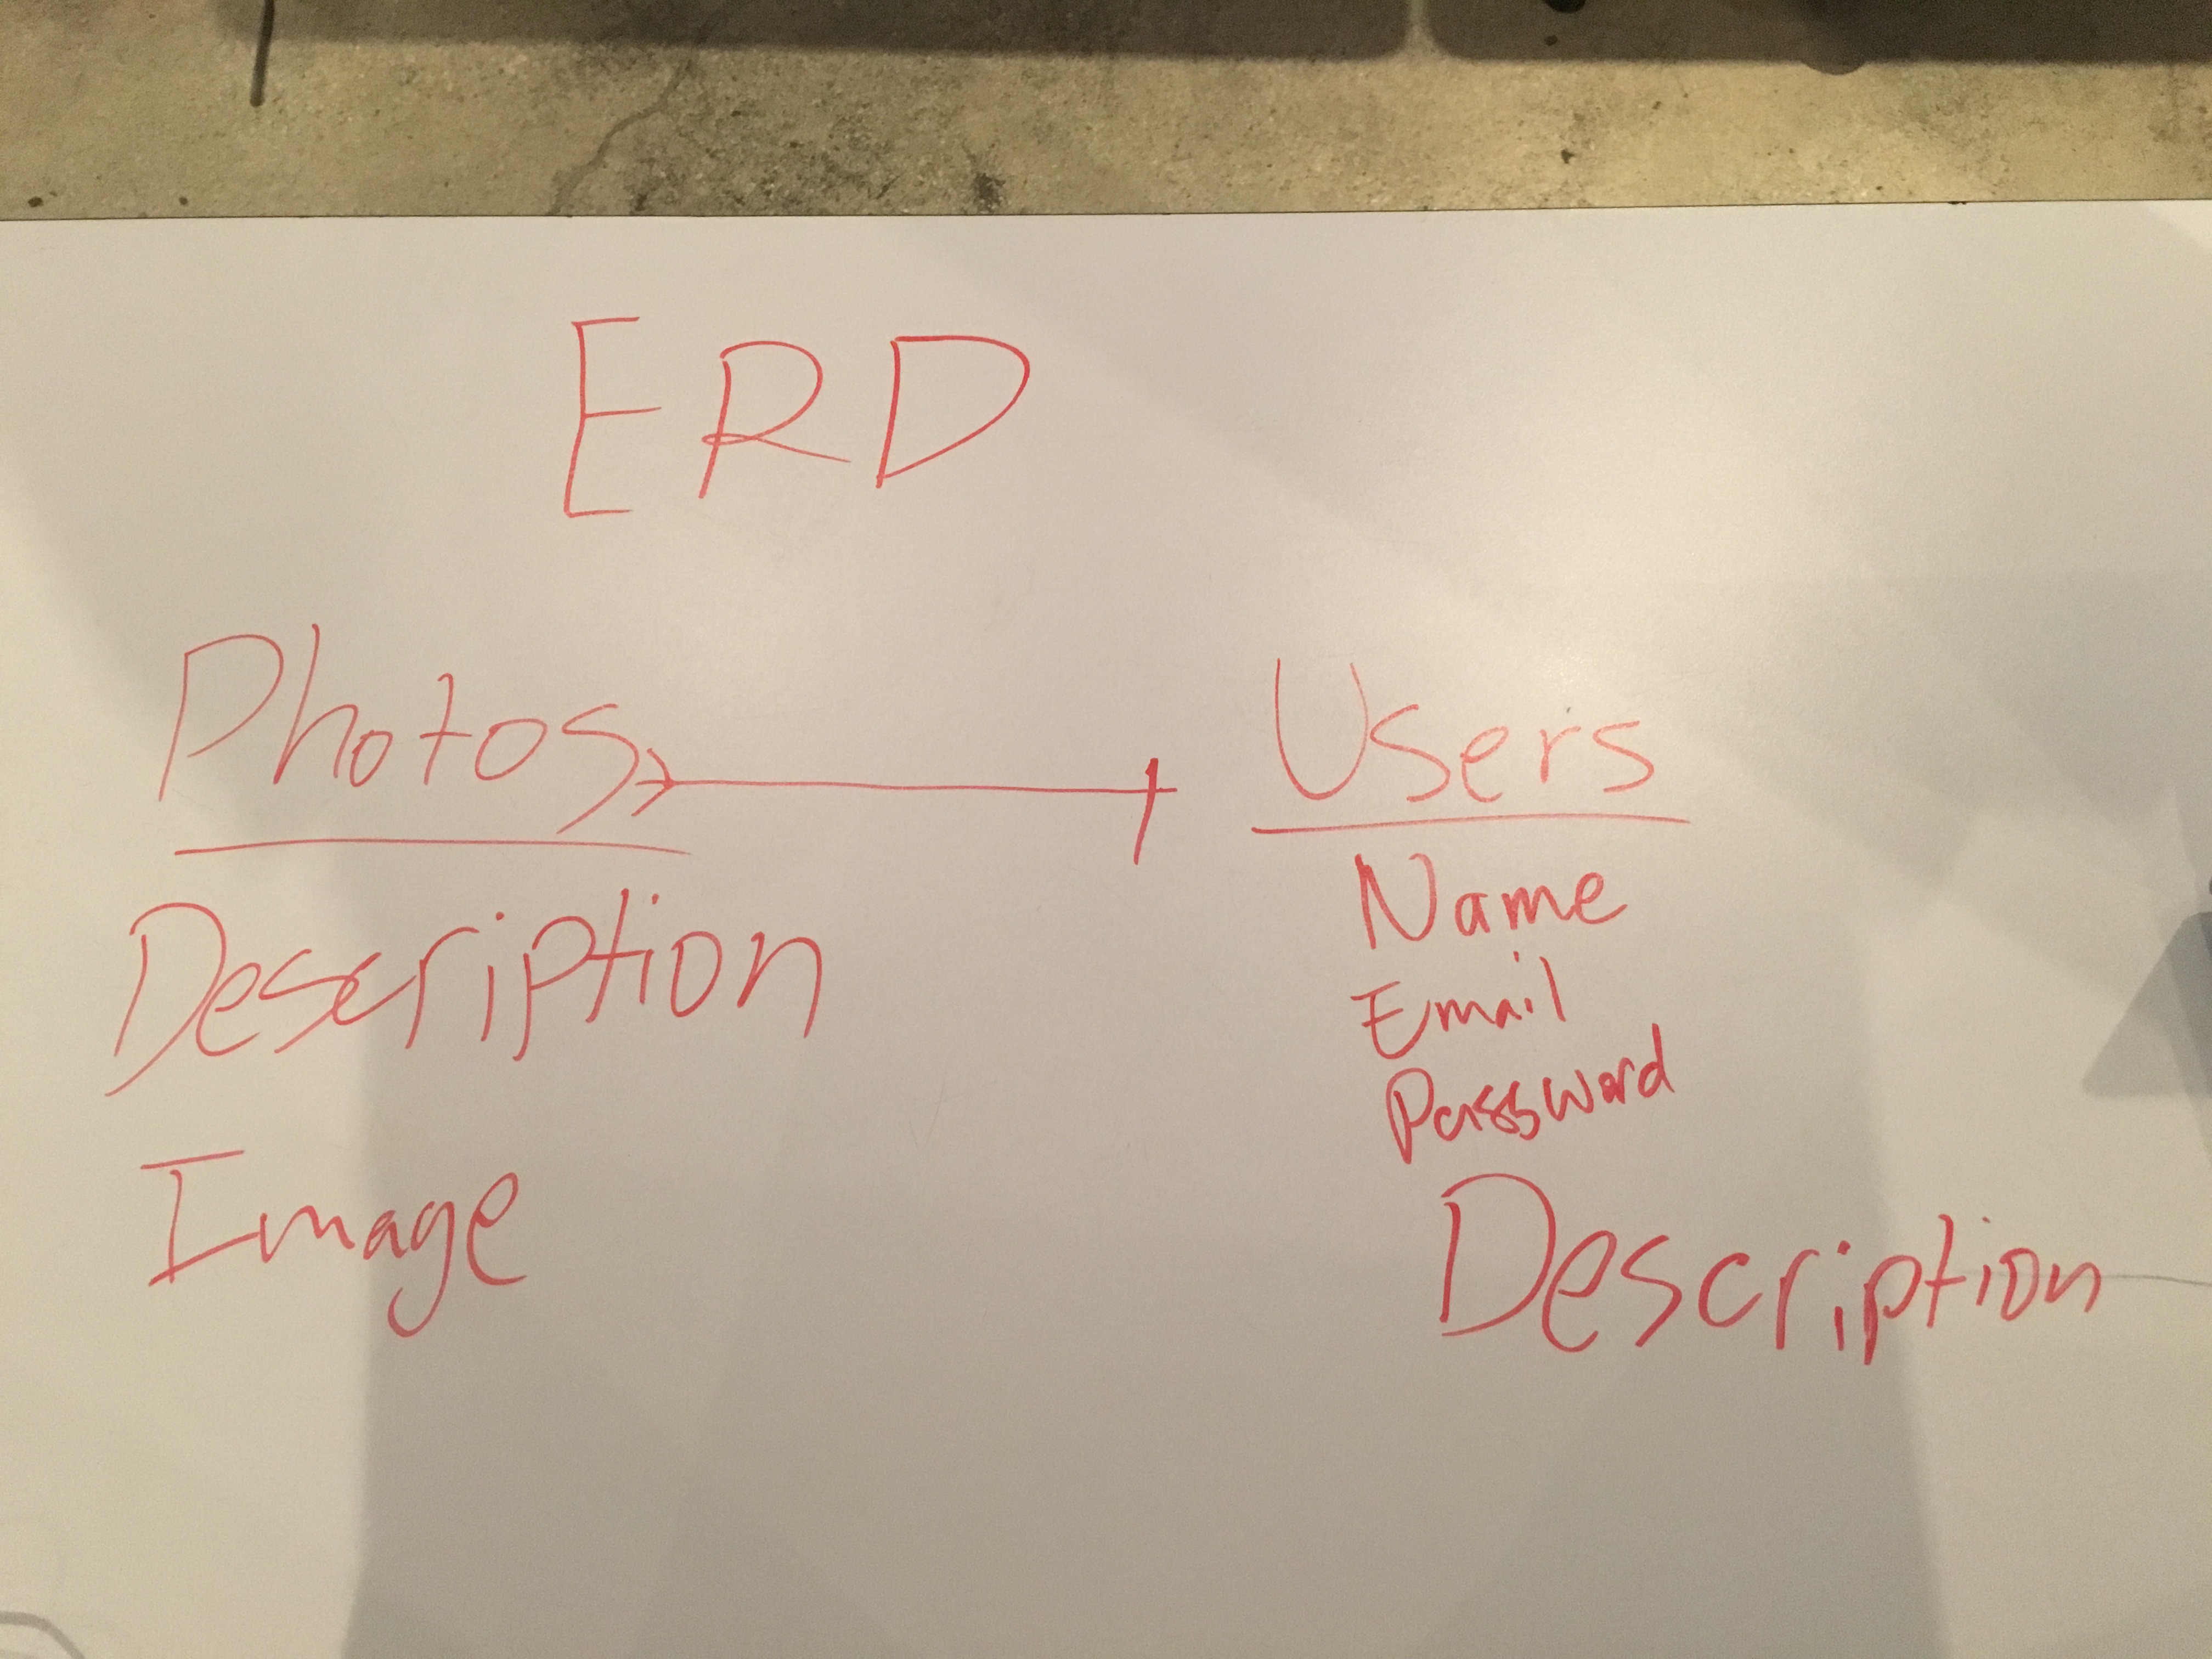 ERD
Photos
Description
Image
Users
Name
Email
Password
Description